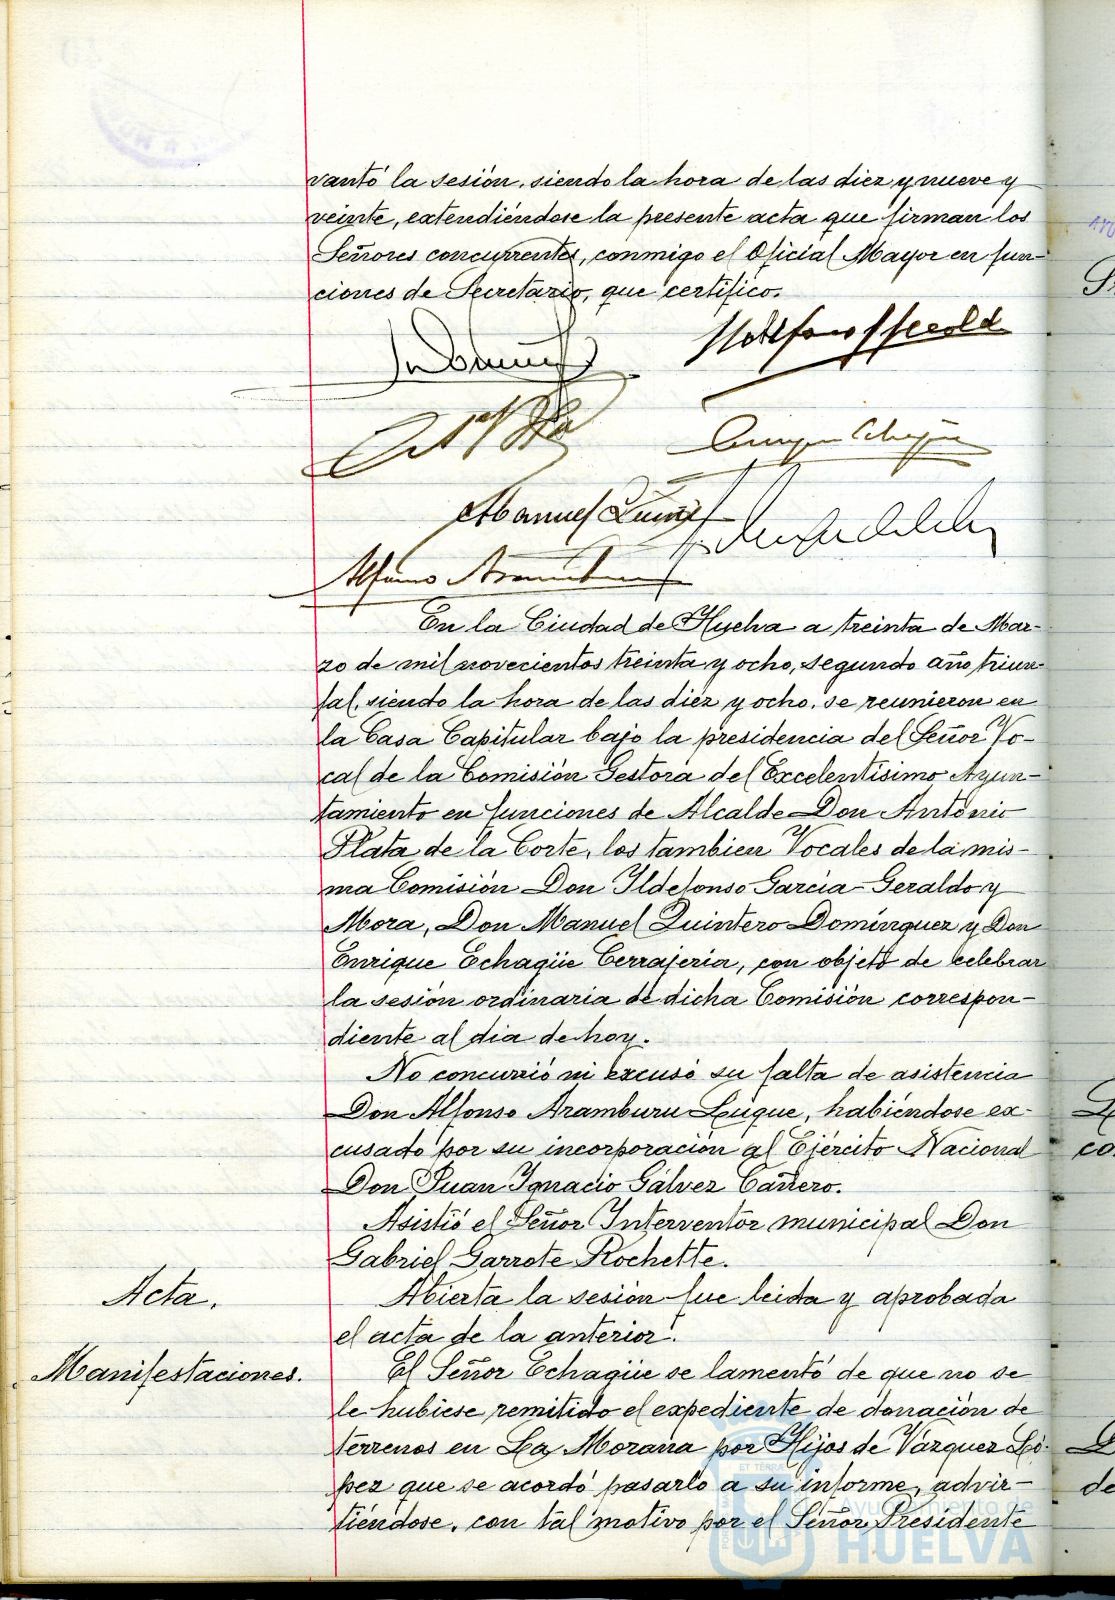 vantó la sesión, siendo la hora de las diez y nueve y
veinte, extendiéndose la presente acta que firman los
Señores concurrentes, conmigo el Oficial Mayor en fun-
ciones de Secretario, que certifico.
Manuel
Alfonso
En la Ciudad de Huelva a treinta de Mar-
zo de mil novecientos treinta y ocho, segundo año triun-
fal, siendo la hora de las diez y ocho, se reunieron en
la Casa Capitular bajo la presidencia del Señor Vo-
cal de la Comisión Gestora del Excelentísimo Ayun-
tamiento en funciones de Alcalde Don Antonio
Plata de la Corte, los tambien Vocales de la mis-
ma Comisión Don Ildefonso García-Geraldo y
Mora, Don Manuel Quintero Domínguez y Don
Enrique Echagüe Cerrajeria, con objeto de celebrar
la sesión ordinaria de dicha Comisión correspon-
diente al dia de hoy.
No concurrió ni excusó su falta de asistencia
Don Alfonso Aramburu Luque, habiéndose ex-
cusado por su incorporación al Ejército Nacional
Don Juan Ignacio Gálvez Cañero.
Asistió el Señor Interventor municipal Don
Gabriel Garrote Rochette.
Acta.
Abierta la sesión fue leida y aprobada
el acta de la anterior.
Manifestaciones.
El Señor Echagüe se lamentó de que no se
le hubiese remitido el expediente de donación de
terrenos en La Morana por Hijos de Vázquez Ló-
pez que se acordó pasarlo a su informe, advir-
tiéndose, con tal motivo por el Señor Presidente
Ayuntamiento de
HUELVA